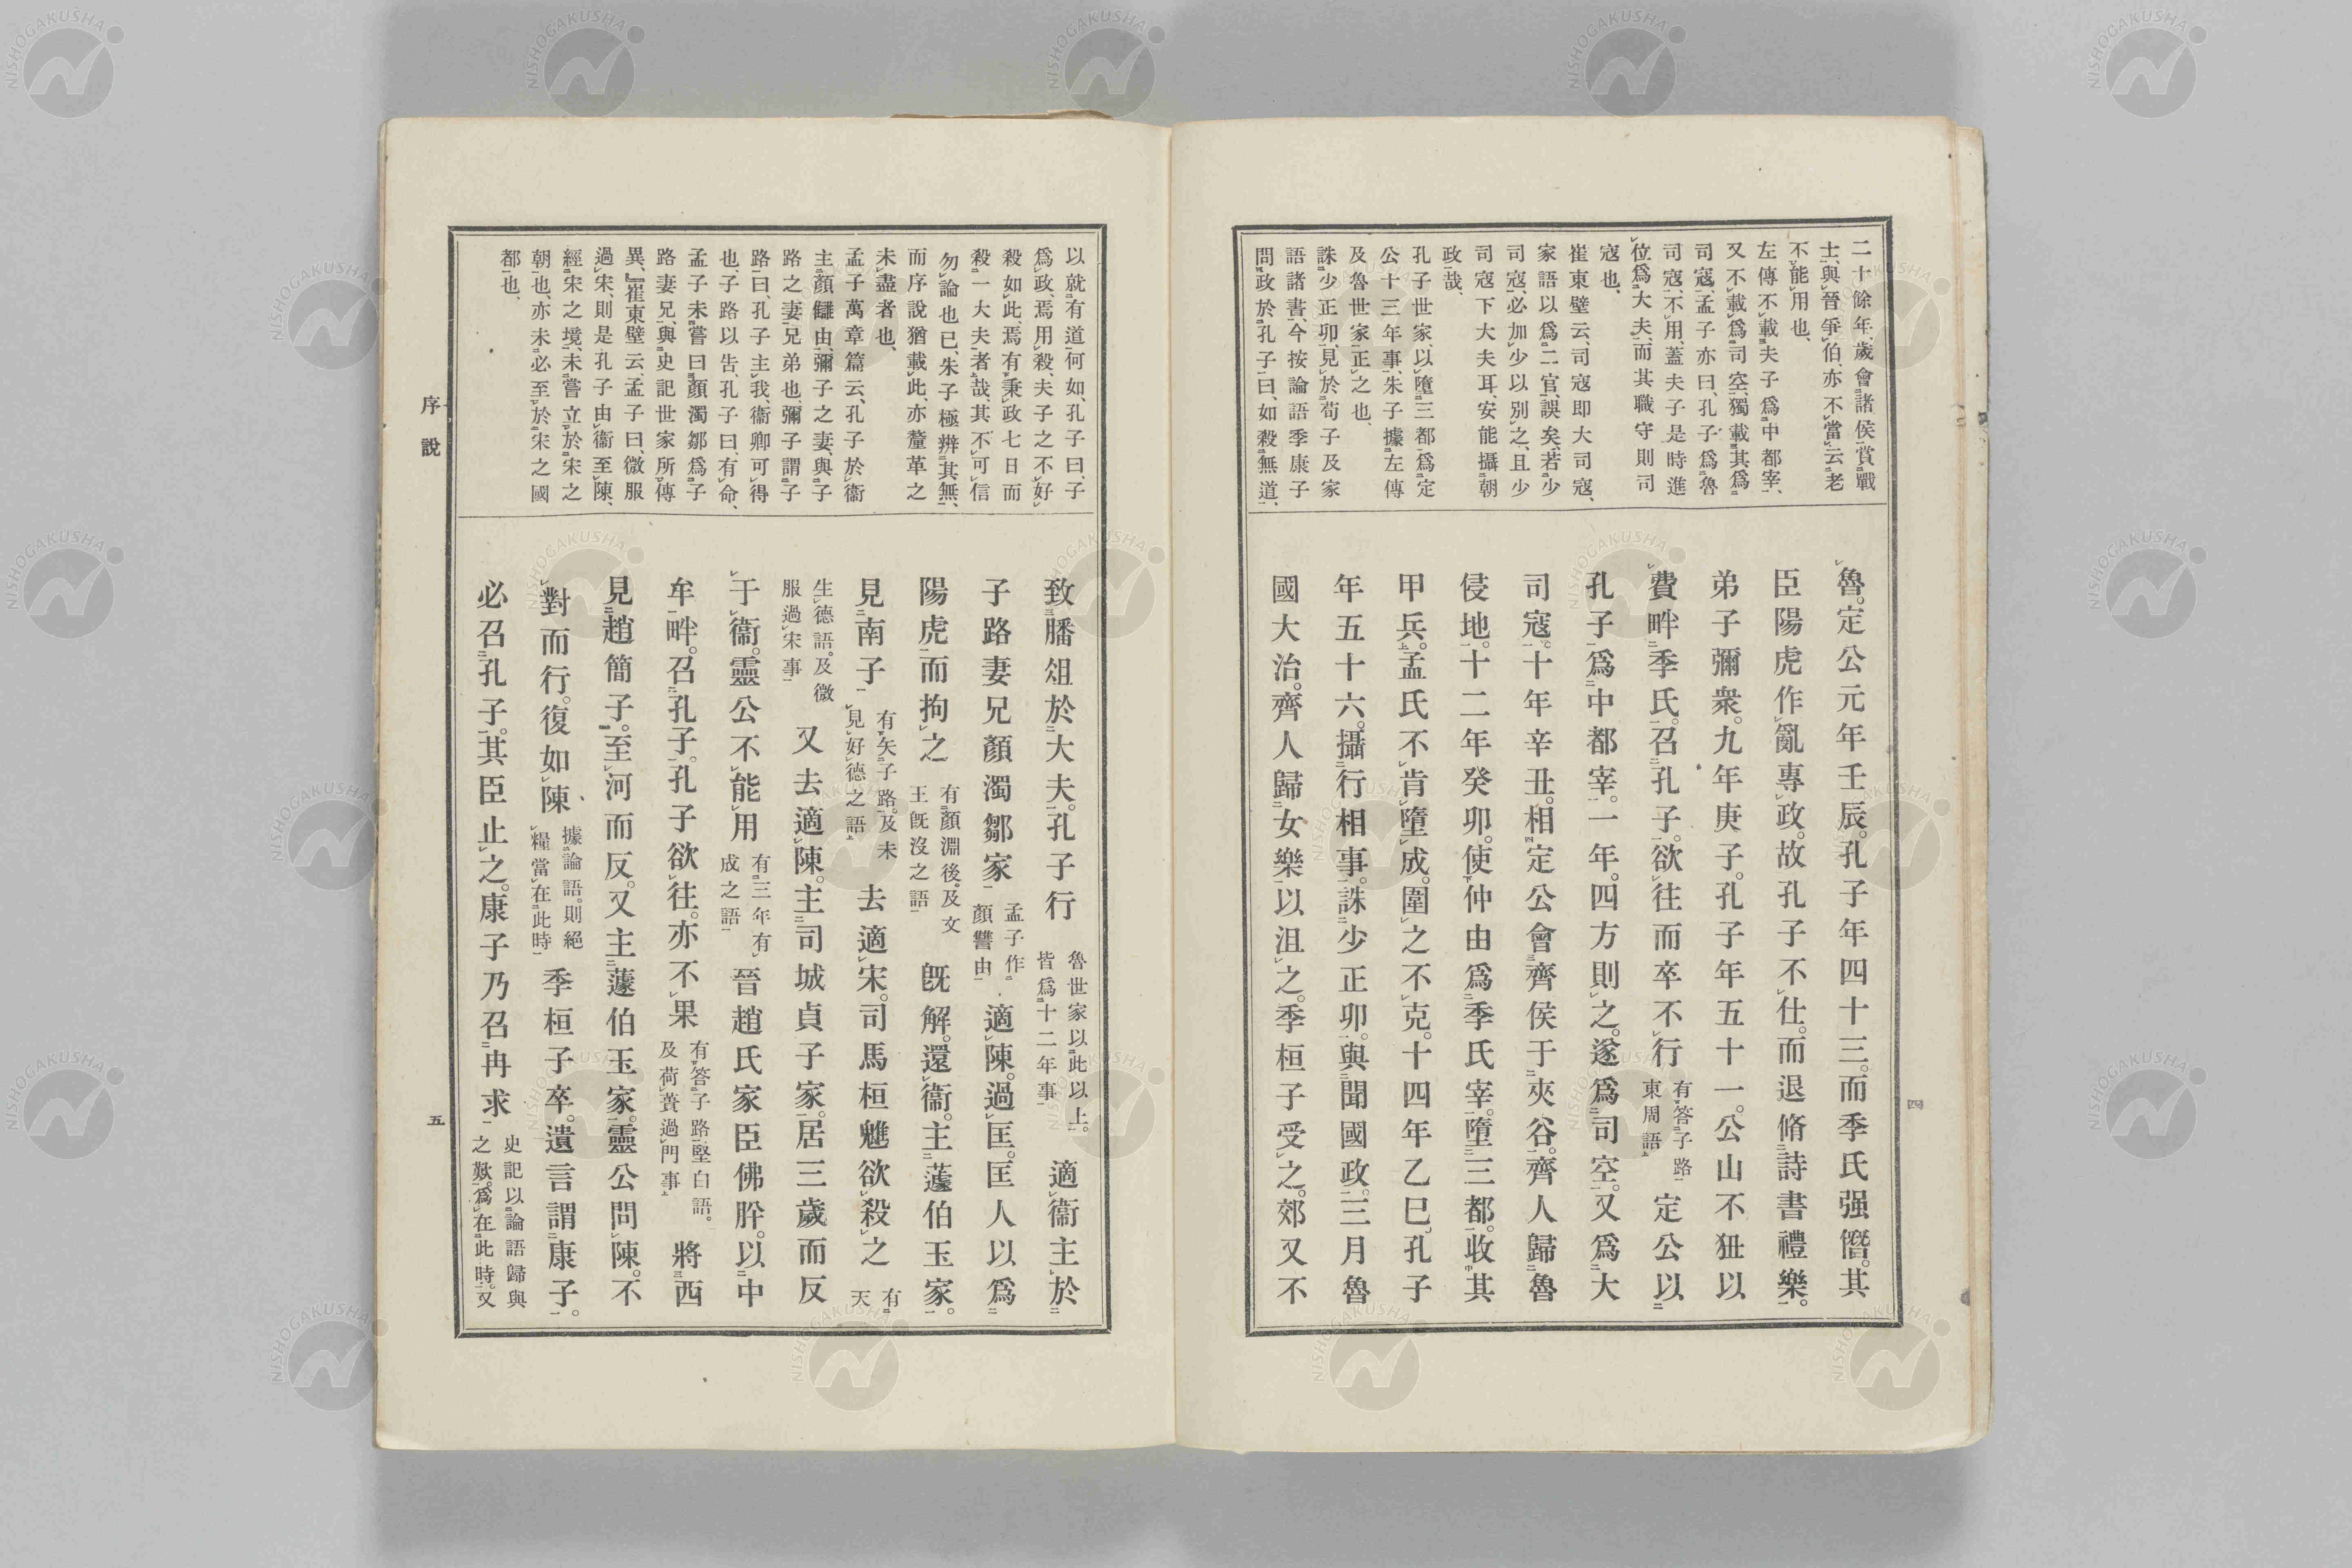 二十餘年、歲會諸侯賞戰
士、與晉爭伯、亦不當云老
不能用也、
左傳不載夫子爲中都宰、
又不載爲司空、獨載其爲
司寇、孟子亦曰、孔子爲魯
司寇、不用、蓋夫子是時進
位爲大夫、而其職守則司
寇也、
崔東壁云、司寇即大司寇、
家語以爲二官、誤矣、若少
司寇、必加少以別之、且少
司寇下大夫耳、安能攝朝
政哉、
孔子世家、以墮三都爲定
公十三年事、朱子據左傳
及魯世家正之也、
誅少正卯、見於荀子及家
語諸書、今按論語季康子
問政於孔子曰、如殺無道、
魯。定公元年壬辰。孔子年四十三。而季氏强僭。其
臣陽虎作亂專政。故孔子不仕。而退脩詩書禮樂。
弟子彌衆。九年庚子。孔子年五十一。公山不狃以
費畔季氏。召孔子。欲往而卒不行 有答子路東周語 定公以
孔子爲中都宰。一年。四方則之。遂爲司空。又爲大
司寇。十年辛丑。相定公會齊侯于夾谷。齊人歸魯
侵地。十二年癸卯。使仲由爲季氏宰。墮三都。收其
甲兵。孟氏不肯墮成。圍之不克。十四年乙巳。孔子
年五十六。攝行相事。誅少正卯。與聞國政。三月魯
國大治。齊人歸女樂以沮之。季桓子受之。郊又不
四
以就有道何如、孔子曰、子
爲政、焉用殺、夫子之不好
殺如此、焉有秉政七日而
殺一大夫者哉、其不可信
勿論也已、朱子極辨其無、
而序說猶載此、亦釐革之
未盡者也、
孟子萬章篇云、孔子於衞
主顏讎由、彌子之妻、與子
路之妻兄弟也、彌子謂子
路曰、孔子主我、衞卿可得
也、子路以告、孔子曰、有命、
孟子未嘗曰顏濁鄒爲子
路妻兄、與史記世家所傳
異、『崔東壁云、孟子曰、微服
過宋、則是孔子由衞至陳、
經宋之境、未嘗立於宋之
朝也、亦未必至於宋之國
都也、
致膰俎於大夫。孔子行 魯世家以此以上。皆爲十二年事 適衞主於
子路妻兄顏濁鄒家 孟子作顏讐由 適陳。過匡。匡人以爲
陽虎而拘之 有顏淵後。及文王既沒之語 既解。還衞。主蘧伯玉家。
見南子 有矢子路。及未見好德之語 去適宋。司馬桓魋欲殺之 有天
生德語。及微服過宋事 又去適陳。主司城貞子家。居三歲而反
于衞。靈公不能用 有三年有成之語 晉趙氏家臣佛肸。以中
牟畔。召孔子。孔子欲往。亦不果 有答子路堅白語。及荷蕢過門事 將西
見趙簡子。至河而反。又主蘧伯玉家。靈公問陳。不
對而行。復如陳 據論語。則絕糧當在此時 季桓子卒。遺言謂康子。
必召孔子。其臣止之。康子乃召冉求 史記以論語歸與之歎。爲在此時。又
序說
五